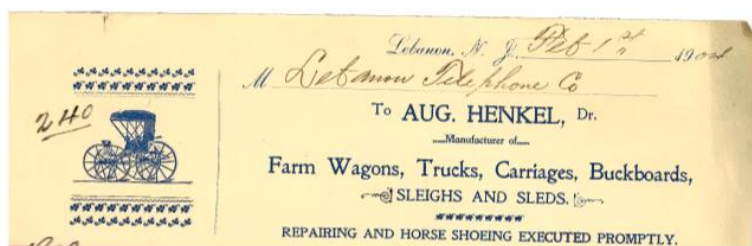 Lebanon, N. J. Feb 1st 1904
M Lebanon Telephone Co
240
To AUG. HENKEL, Dr.
Manufacturer of
Farm Wagons, Trucks, Carriages, Buckboards,
SLEIGHS AND SLEDS.
REPAIRING AND HORSE SHOEING EXECUTED PROMPTLY.